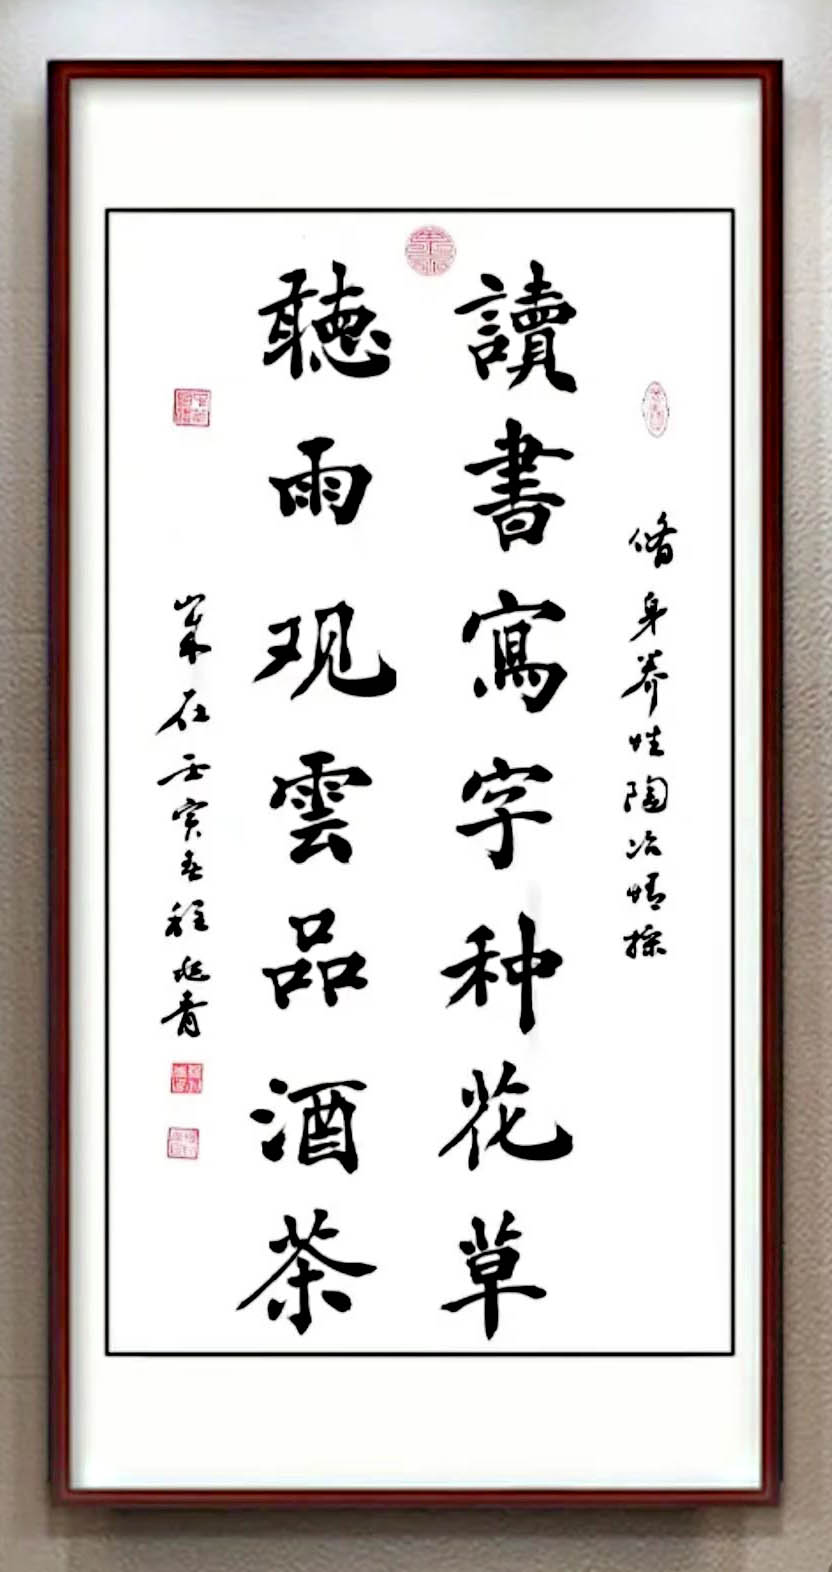 脩身养性陶冶情操
讀書寫字种花草
聽雨观雲品酒茶
嵗在壬寅春程兆青